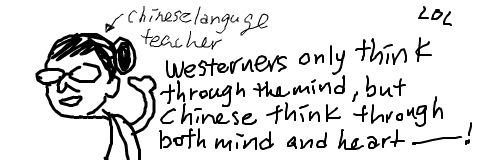 chineselanguge
teacher
LOL
westerners only think
through the mind, but
chinese think through
both mind and heart —!